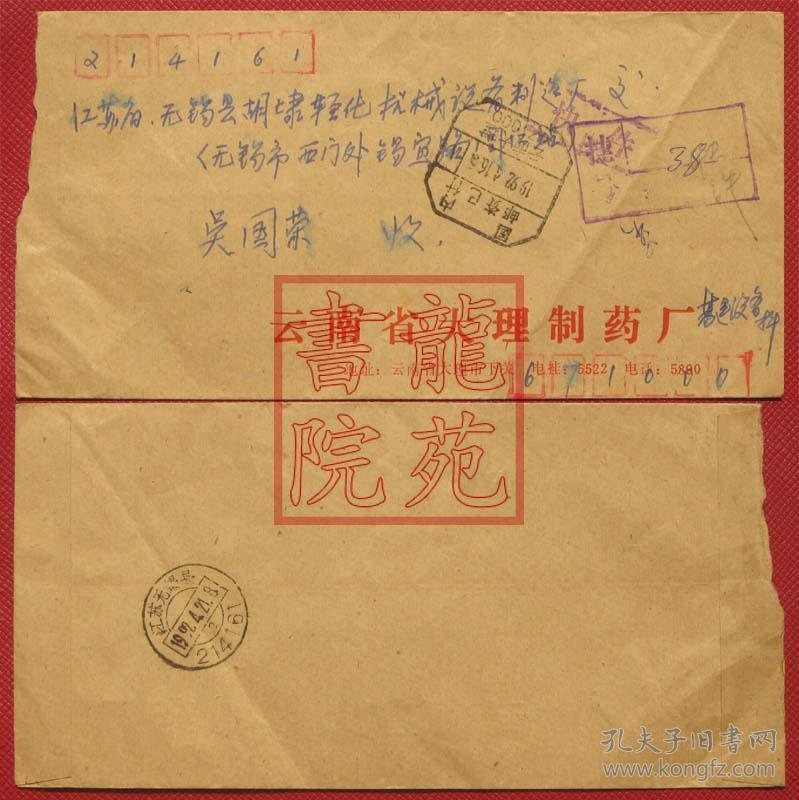 214161
江苏省.无锡县胡埭轻化机械设备制造厂 交.
(无锡市西门外锡宜
吴国荣 收.
国内
邮资已付
1992.4.16
挂
云南省大理制药厂
地址:云南省大理市下关 电挂:5522 电话:5880
671000
書龍
院苑
江苏无锡县
1992.4.21.8
2
214161
孔夫子旧书网
www.kongfz.com